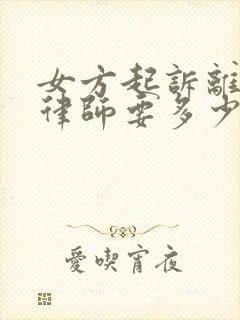 女方起訴離
律師要多少
愛喫宵夜